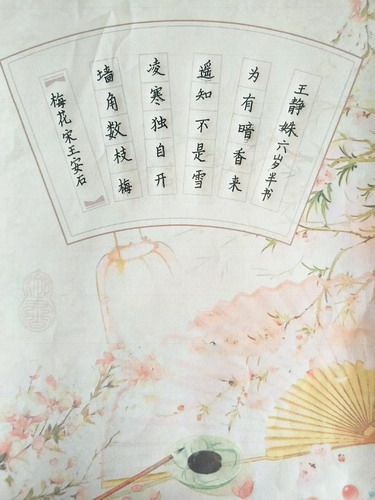 梅花 宋 王安石
墙角数枝梅
凌寒独自开
遥知不是雪
为有暗香来
王静姝六岁半书